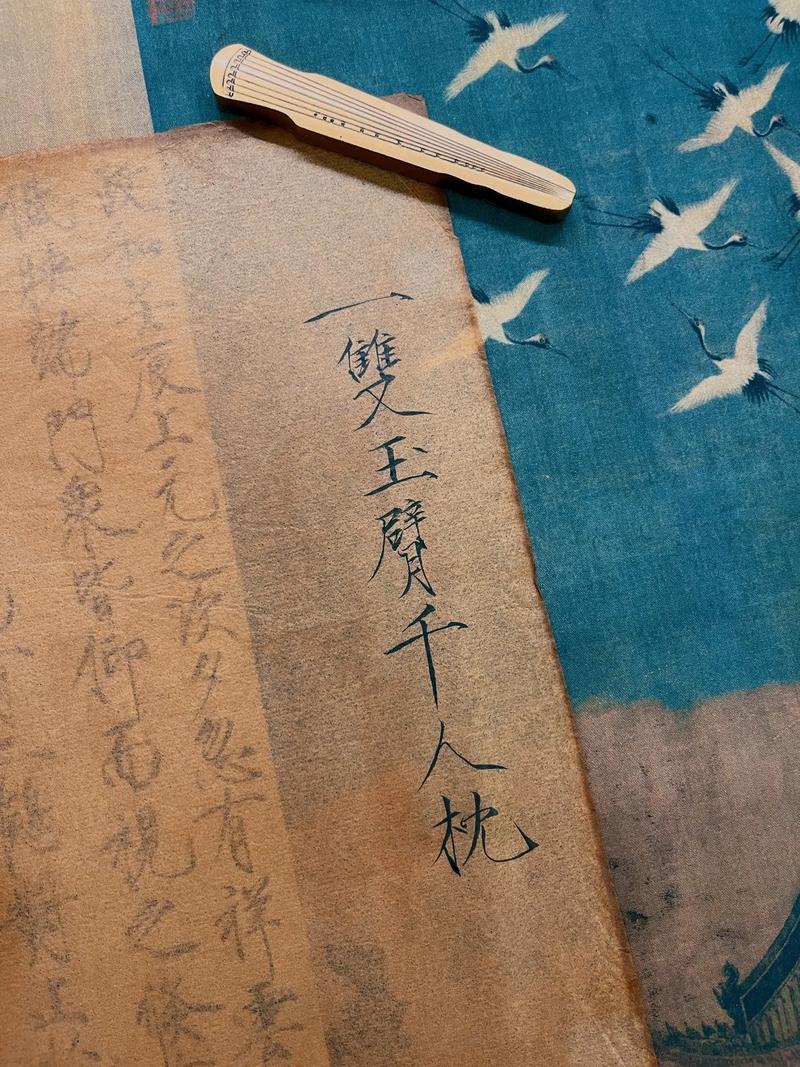 一雙玉臂千人枕
政和壬辰上元之次夕忽有祥雲
低映端門衆皆仰而視之倏
鶴對止